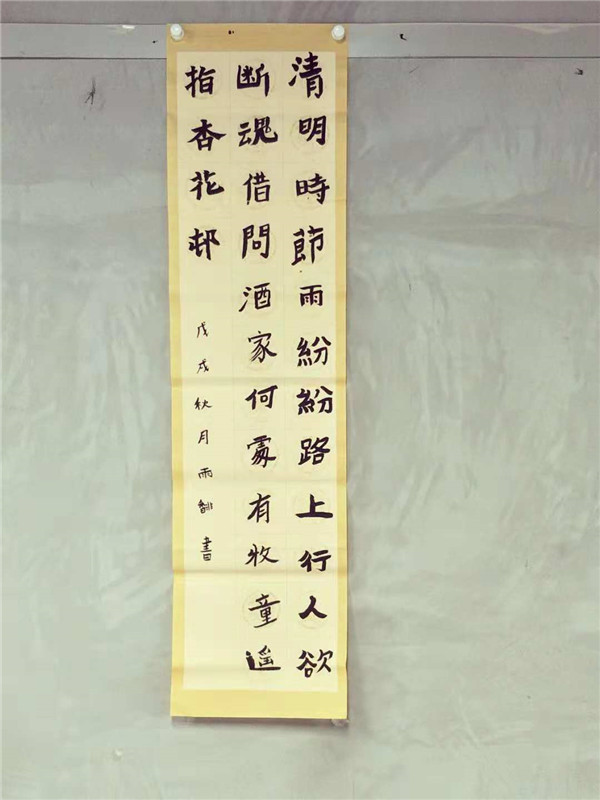 清明時節雨紛紛路上行人欲
断魂借問酒家何處有牧童遥
指杏花邨
戊戌秋月雨書